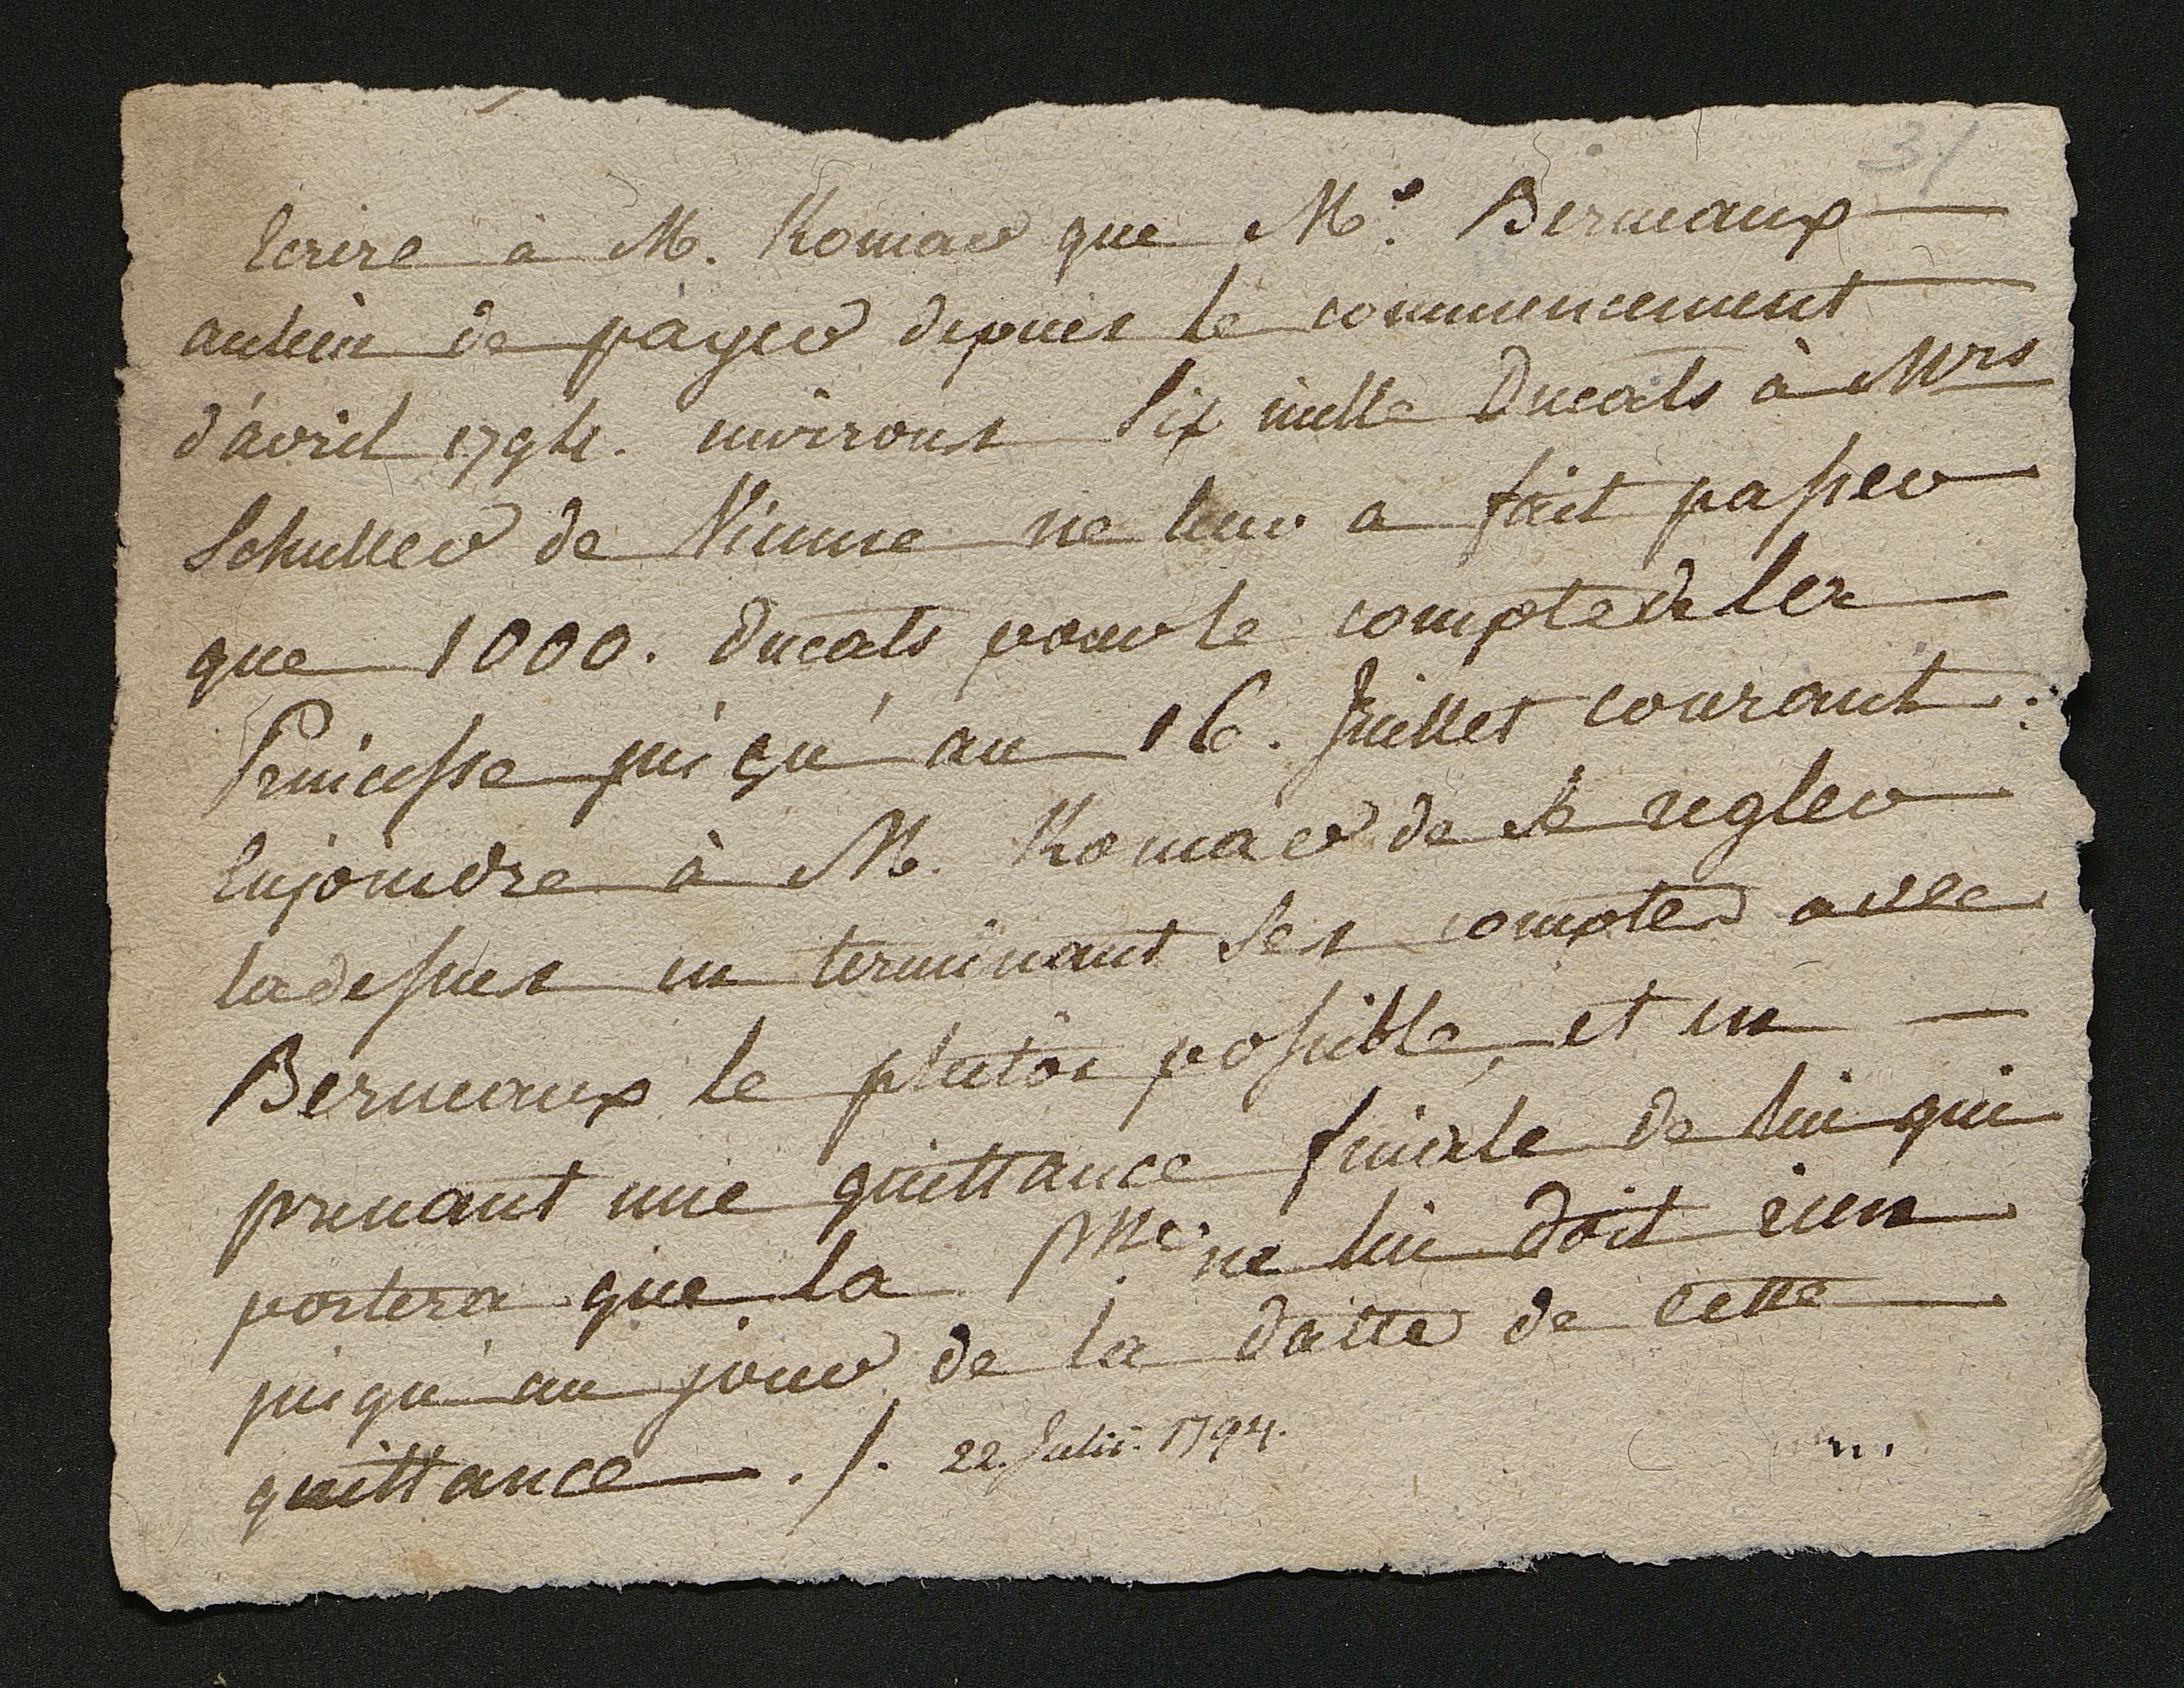 31
Ecrire à M. Komar que Mr. Berneaux
aulieu de païer depuis le commencement
d'avril 1794. environs Six mille Ducats à Mrs
Schuller de Vienne ne leur a fait passer
que 1000. Ducats pour le compte de la
Princesse jusqu'au 16. Juillet courant:
Enjoindre à M. Komar de se regler
ladessus en terminant ses comptes avec
Berneaux le plutôs possible, et en
prenant une quittance finale de lui qui
portera que la Psse ne lui doit rien
jusqu'au jour de la datte de cette
quittance ./. 22. Julii. 1794.